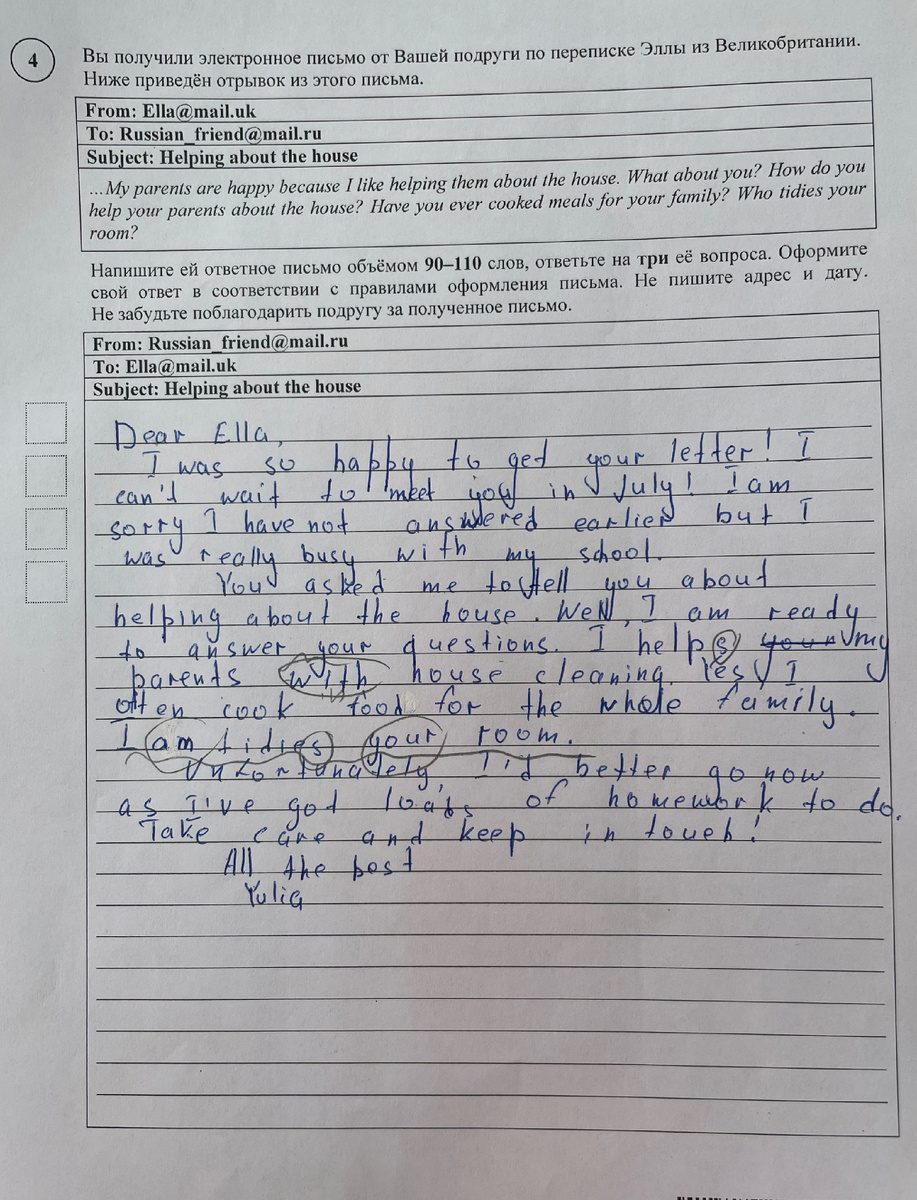 4
Вы получили электронное письмо от Вашей подруги по переписке Эллы из Великобритании.
Ниже приведён отрывок из этого письма.
From: Ella@mail.uk
To: Russian_friend@mail.ru
Subject: Helping about the house
...My parents are happy because I like helping them about the house. What about you? How do you
help your parents about the house? Have you ever cooked meals for your family? Who tidies your
room?
Напишите ей ответное письмо объёмом 90–110 слов, ответьте на три её вопроса. Оформите
свой ответ в соответствии с правилами оформления письма. Не пишите адрес и дату.
Не забудьте поблагодарить подругу за полученное письмо.
From: Russian_friend@mail.ru
To: Ella@mail.uk
Subject: Helping about the house
Dear Ella,
I was so happy to get your letter! I
can't wait to meet you in July! I am
sorry I have not answered earlier but I
was really busy with my school.
You asked me to tell you about
helping about the house. Well, I am ready
to answer your questions. I helps your my
parents with house cleaning. Yes, I
often cook food for the whole family.
I am tidies your room.
Unfortunately, I'd better go now
as I've got loads of homework to do.
Take care and keep in touch!
All the best
Yulia